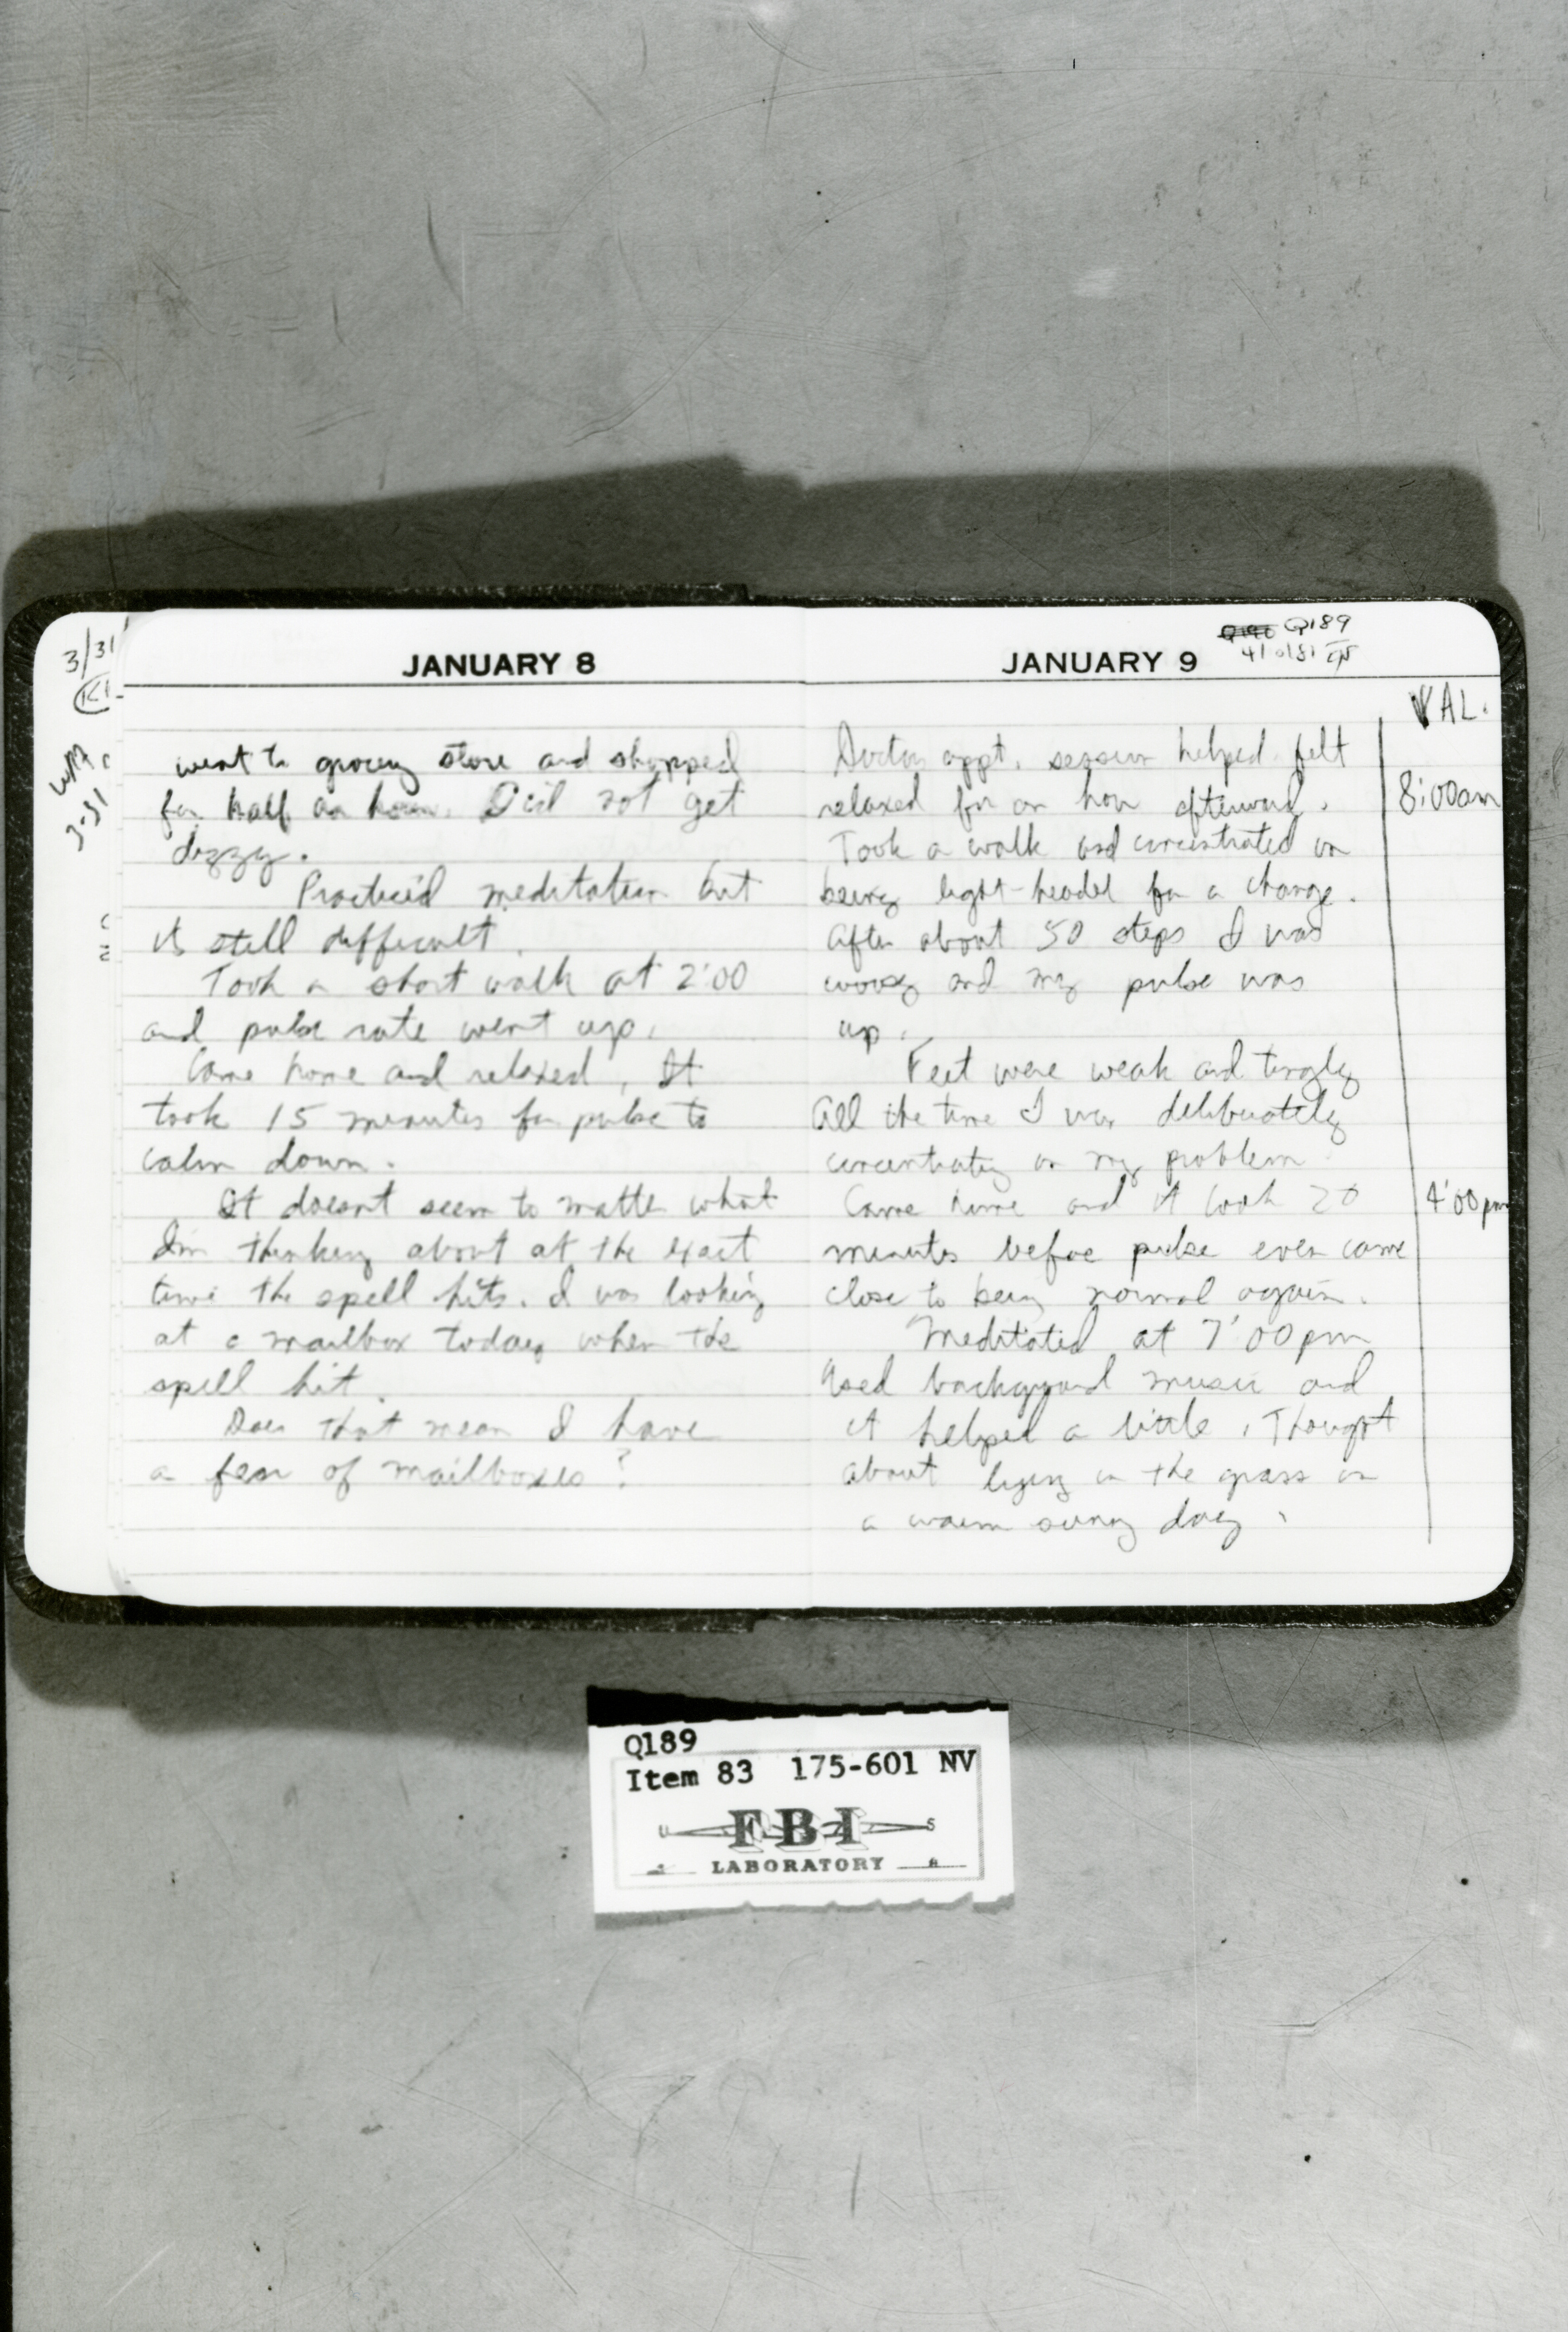 3/31
JANUARY 8
went to grocery store and shopped
for half an hour. Did not get
dizzy.
Practiced meditation but
its still difficult.
Took a short walk at 2:00
and pulse rate went up.
Came home and relaxed, It
took 15 minutes for pulse to
calm down.
It doesn't seem to matter what
I'm thinking about at the exact
time the spell hits. I was looking
at a mailbox today when the
spell hit.
Does that mean I have
a fear of mailboxes?
JANUARY 9
Q189
VAL.
Doctor appt. session helped. felt
relaxed for an hour afterward.
8:00am
Took a walk and concentrated on
being light-headed for a change.
After about 50 steps I was
woozy and my pulse was
up.
Feet were weak and tingly
All the time I was deliberately
concentrating on my problem.
Came home and it took 20
4:00pm
minutes before pulse even came
close to being normal again.
Meditated at 7:00pm
Used background music and
it helped a little. Thought
about lying in the grass on
a warm sunny day.
Q189
Item 83 175-601 NV
U S
FBI
LABORATORY